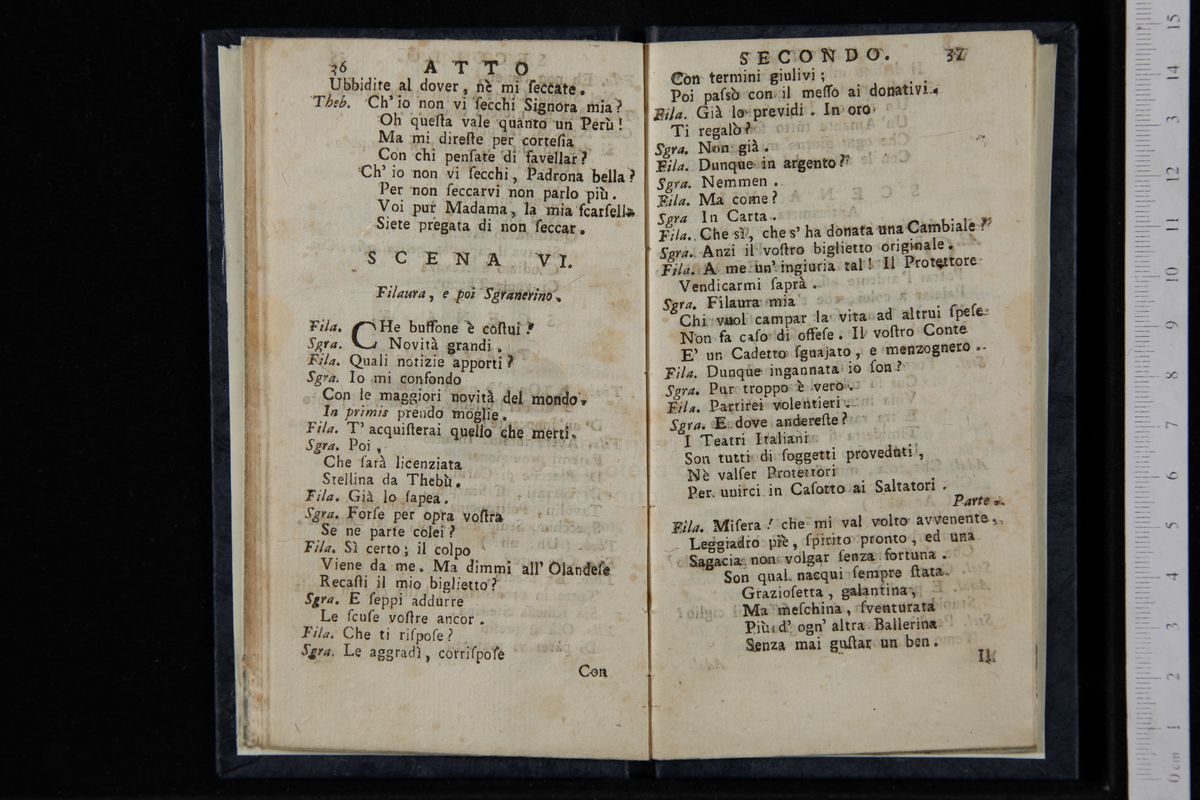 36 ATTO
Ubbidite al dover, nè mi ſeccate.
Theb. Ch'io non vi ſecchi Signora mia?
Oh queſta vale quanto un Perù!
Ma mi direſte per corteſia
Con chi penſate di favellar?
Ch' io non vi ſecchi, Padrona bella?
Per non ſeccarvi non parlo più.
Voi pur Madama, la mia ſcarſella
Siete pregata di non ſeccar.
SCENA VI.
Filaura, e poi Sgranerino.
Fila. CHe buffone è coſtui!
Sgra. Novità grandi.
Fila. Quali notizie apporti?
Sgra. Io mi confondo
Con le maggiori novità del mondo.
In primis prendo moglie.
Fila. T' acquiſterai quello che merti.
Sgra. Poi,
Che ſarà licenziata
Stellina da Thebù.
Fila. Già lo ſapea.
Sgra. Forſe per opra voſtra
Se ne parte colei?
Fila. Sì certo; il colpo
Viene da me. Ma dimmi all' Olandeſe
Recaſti il mio biglietto?
Sgra. E ſeppi addurre
Le ſcuſe voſtre ancor.
Fila. Che ti riſpoſe?
Sgra. Le aggradì, corriſpoſe
Con
SECONDO. 37
Con termini giulivi;
Poi paſsò con il meſſo ai donativi.
Fila. Già lo previdi. In oro
Ti regalò?
Sgra. Non già.
Fila. Dunque in argento?
Sgra. Nemmen.
Fila. Ma come?
Sgra In Carta.
Fila. Che sì, che s' ha donata una Cambiale?
Sgra. Anzi il voſtro biglietto originale.
Fila. A me un' ingiuria tal! Il Protettore
Vendicarmi ſaprà.
Sgra. Filaura mia
Chi vuol campar la vita ad altrui ſpeſe
Non fa caſo di offeſe. Il voſtro Conte
E' un Cadetto ſguajato, e menzognero.
Fila. Dunque ingannata io ſon?
Sgra. Pur troppo è vero.
Fila. Partirei volentieri.
Sgra. E dove andereſte?
I Teatri Italiani
Son tutti di ſoggetti proveduti,
Nè valſer Protettori
Per unirci in Caſotto ai Saltatori.
Parte.
Fila. Miſera! che mi val volto avvenente,
Leggiadro piè, ſpirito pronto, ed una
Sagacia non volgar ſenza fortuna.
Son qual nacqui ſempre ſtata
Grazioſetta, galantina,
Ma meſchina, ſventurata
Più d' ogn' altra Ballerina
Senza mai guſtar un ben.
Il
0 cm 1 2 3 4 5 6 7 8 9 10 11 12 13 14 15